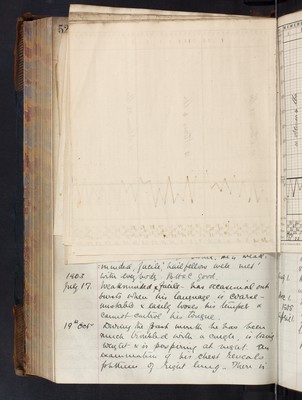 59
minded, facile, hail fellow well met
with everybody. Pastes good.
1903
July 17. Weakminded & facile - has occasional out
bursts when his language is coarse -
unstable & easily looses his temper &
cannot control his tongue.
19th Oct During the past month he has been
much troubled with a cough, is losing
weight & is perspiring at night. An
examination of his chest reveals
phthisis of right lung. There is